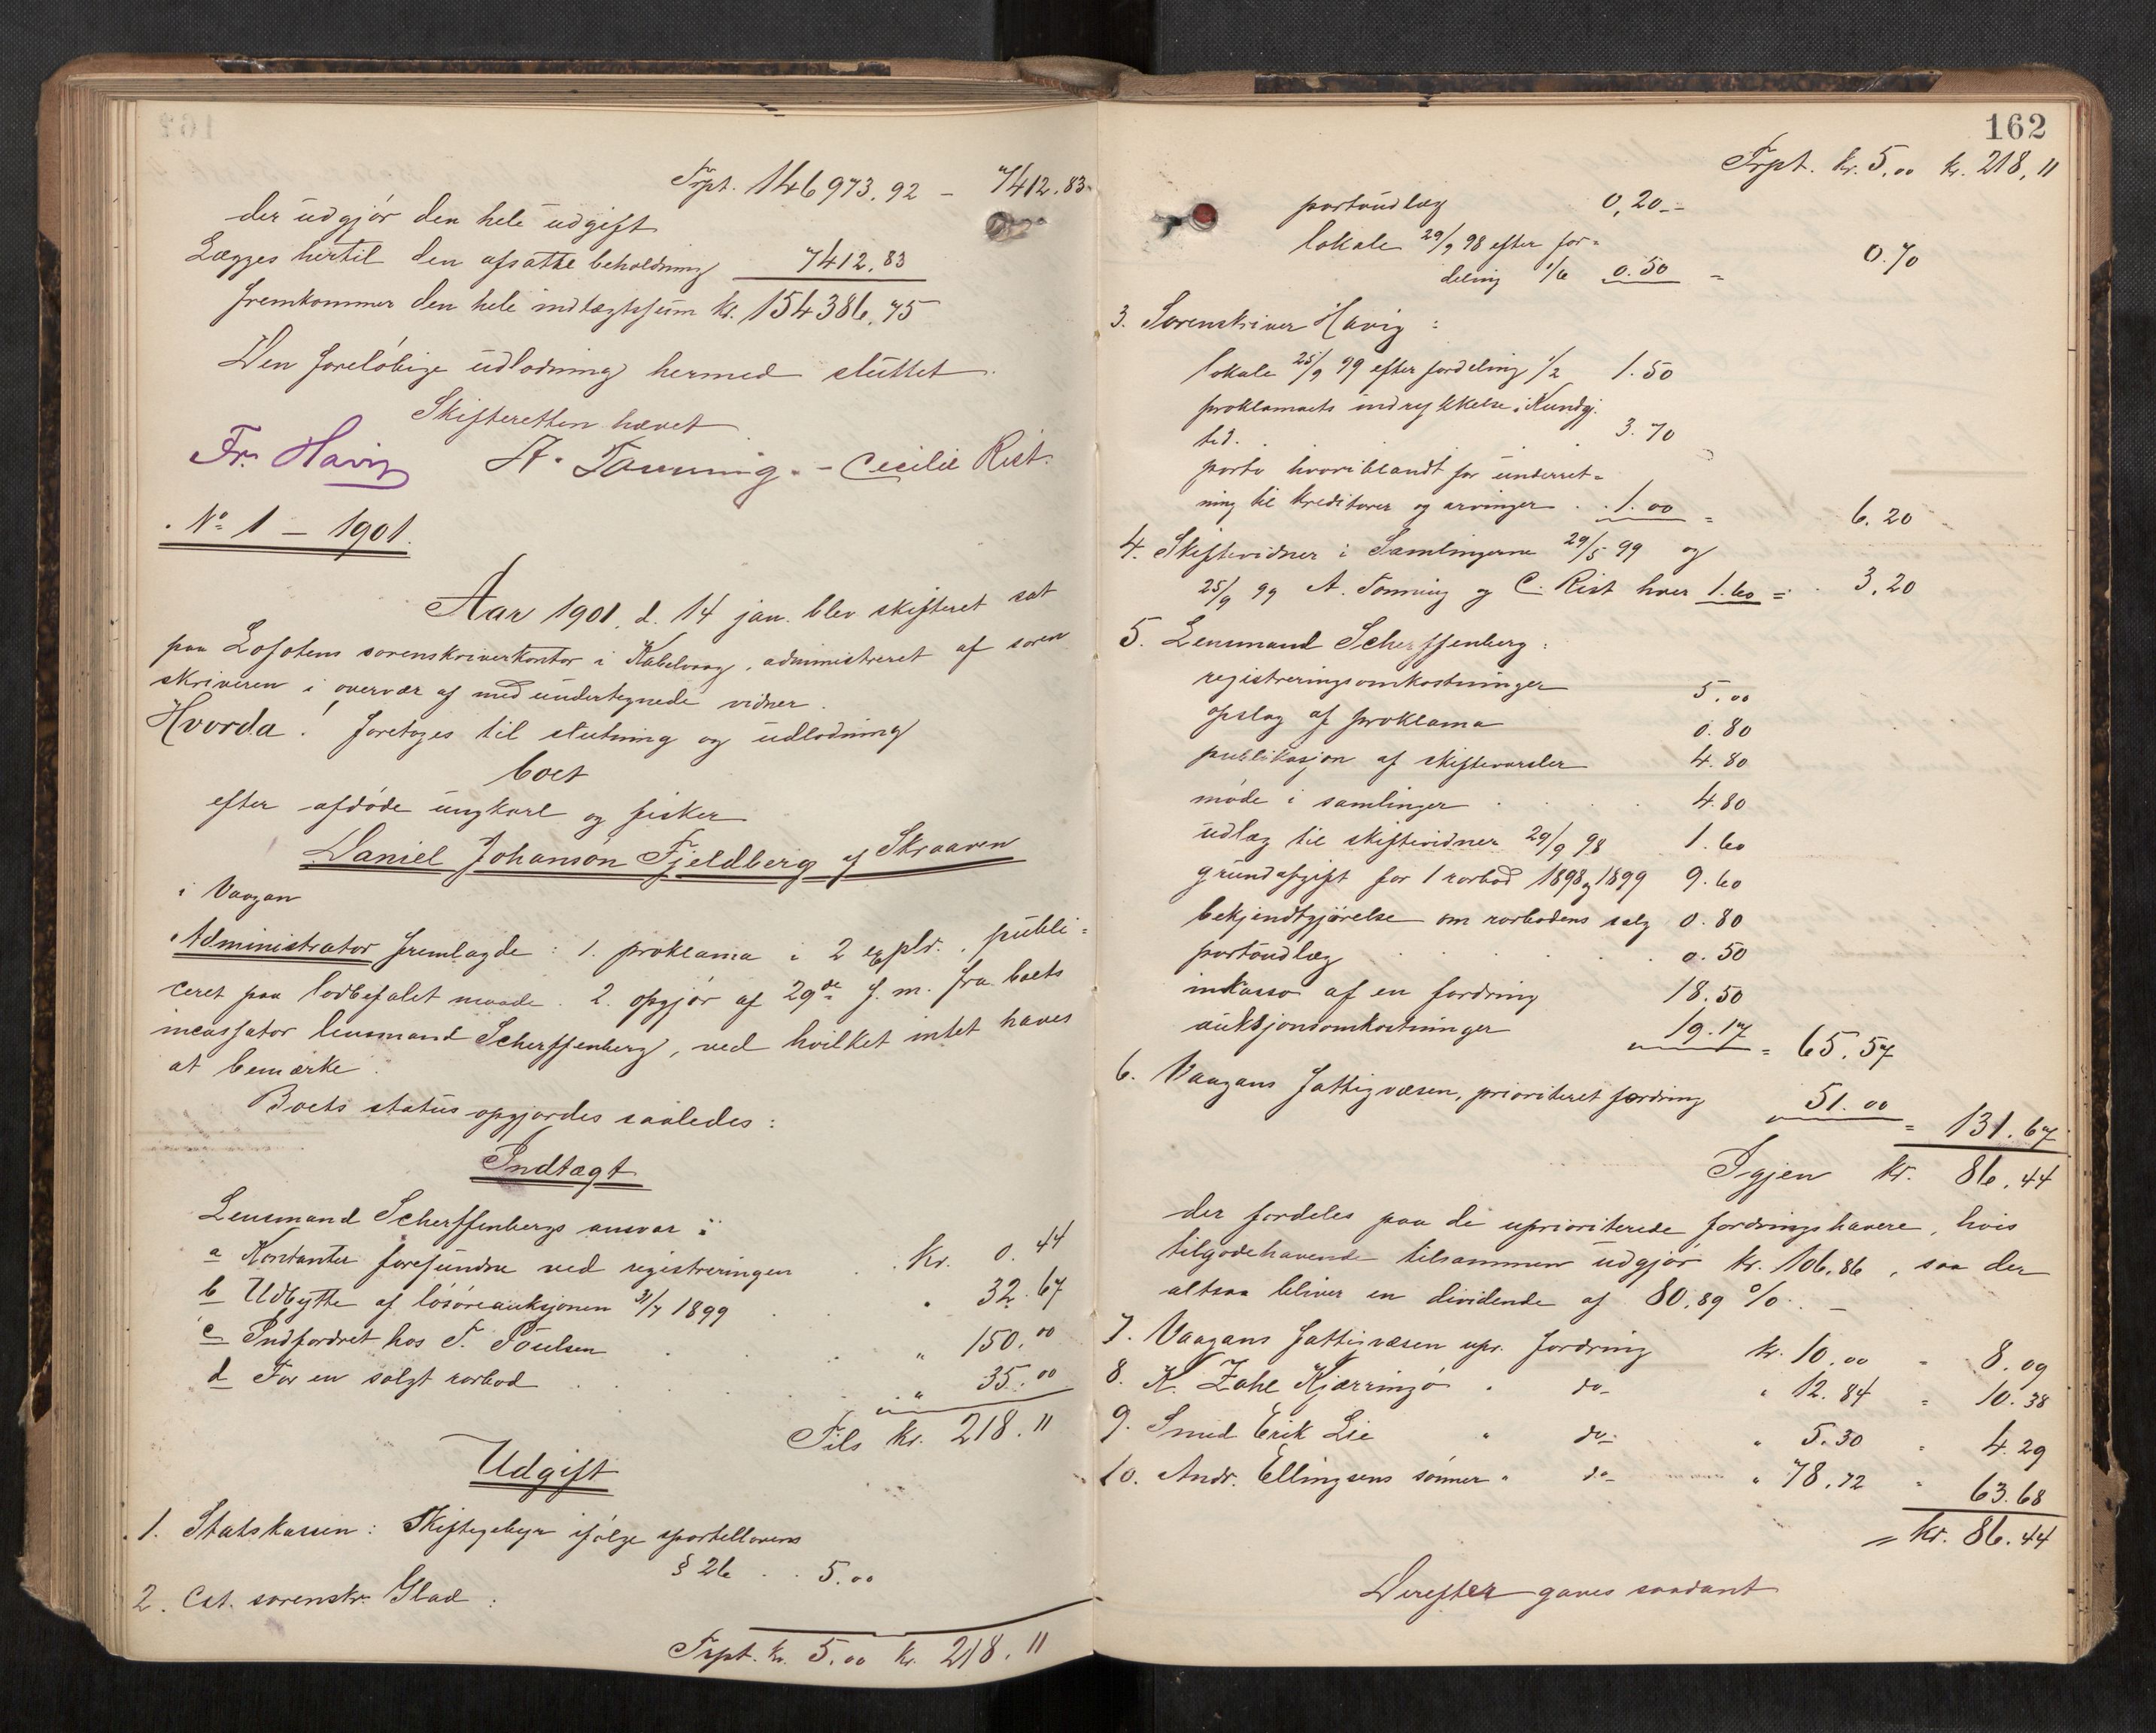 Frpt. 146973.92 – 7412.83.
der udgjør den hele udgift
Lægges hertil den afsatte beholdning 7412.83
fremkommer den hele indtægtssum kr. 154386.75
Den foreløbige udlodning hermed sluttet.
Skifteretten hævet
Fr. Havig A. Tonning. – Cecilie Rist.
No 1 – 1901.
Aar 1901, d. 14 jan. blev skifteret sat
paa Lofotens sorenskriverkontor i Kabelvaag, administreret af soren
skriveren i overvær af medundertegnede vidner.
Hvorda! foretoges til slutning og udlodning
boet
efter afdøde ungkarl og fisker
Daniel Johanson Fjeldberg af Skraaven
i Vaagan
Administrator fremlagde: 1. proklama i 2 explr., publi=
ceret paa lovbefalet maade. 2. opgjør af 29de f. m. fra boets
incassator lensmand Scherffenberg, ved hvilket intet haves
at bemærke.
Boets status opgjordes saaledes:
Indtægt
Lensmand Scherffenbergs ansvar:
a Kontanter forefundne ved registreringen . kr. 0.44
b Udbytte af løsøreauksjonen 31/7 1899 . " 32.67
c Indfordret hos T. Poulsen . . " 150.00
d For en solgt rorbod . . . " 35.00
Tils kr. 218.11
Udgift
1. Statskassen: Skiftegebyr ifølge sportellovens
§ 26 . . 5.00
2. Cst. sorenskr. Glad:
Frpt. kr. 5.00 kr. 218.11
162
Frpt. kr. 5.00 kr. 218.11
portoudlæg 0,20 --
lokale 29/9 98 efter for=
deling 1/6 0.50 = 0.70
3. Sorenskriver Havig:
lokale 25/9 99 efter fordeling 1/2 1.50
proklamaets indrykkelse i Kundgj.
tid. 3.70
porto hvoriblandt for underret=
ning til kreditorer og arvinger . . 1.00 = 6.20
4. Skiftevidner i Samlingerne 29/5 99 og
25/9 99 A. Tonning og C. Rist hver 1.60 = 3.20
5. Lensmand Scherffenberg:
registreringsomkostninger 5.00
opslag af proklama 0.80
publikasjon af skiftevarsler 4.80
møde i samlinger . . . 4.80
udlæg til skiftevidner 29/9 98 1.60
grundafgift for 1 rorbod 1898 og 1899 9.60
bekjendtgjørelse om rorbodens salg 0.80
portoudlæg . . . . . 0.50
inkasso af en fordring 18.50
auksjonsomkostninger 19.17 = 65.57
6. Vaagans Fattigvæsen, prioriteret fordring 51.00 = 131.67
Igjen kr. 86.44
der fordeles paa de uprioriterede fordringshavere, hvis
tilgodehavende tilsammen udgjør kr. 106,86, saa der
altsaa bliver en dividende af 80,89 %. –
7. Vaagans Fattigvæsen upr. fordring kr. 10.00 = 8.09
8. K. Zahl Kjærringø " do– " 12.84 = 10.38
9. Smed Erik Lie " do– " 5.30 = 4.29
10. Andr. Ellingsens sønner " do– " 78.72 = 63.68
= kr. 86.44
Derefter gaves saadant